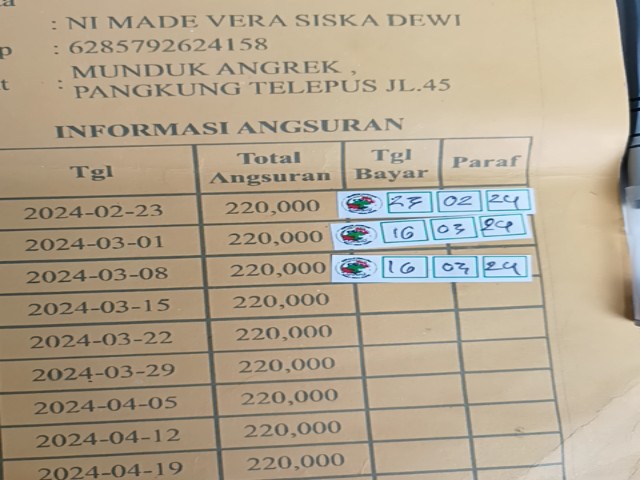 : NI MADE VERA SISKA DEWI
p : 6285792624158
t : MUNDUK ANGREK ,
PANGKUNG TELEPUS JL.45
INFORMASI ANGSURAN
Tgl Total Angsuran Tgl Bayar Paraf
2024-02-23 220,000 23 02 24
2024-03-01 220,000 16 03 24
2024-03-08 220,000 16 03 24
2024-03-15 220,000
2024-03-22 220,000
2024-03-29 220,000
2024-04-05 220,000
2024-04-12 220,000
2024-04-19 220,000